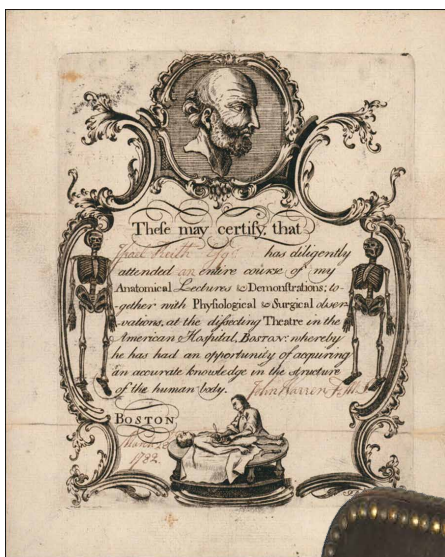 These may certify, that
Israel Keith Esqr. has diligently
attended an entire course of my
Anatomical Lectures & Demonstrations; to-
-gether with Physiological & Surgical obser-
vations, at the dissecting Theatre in the
American Hospital, BOSTON: whereby
he has had an opportunity of acquiring
an accurate knowledge in the structure
of the human body. John Warren
BOSTON
March
1782.